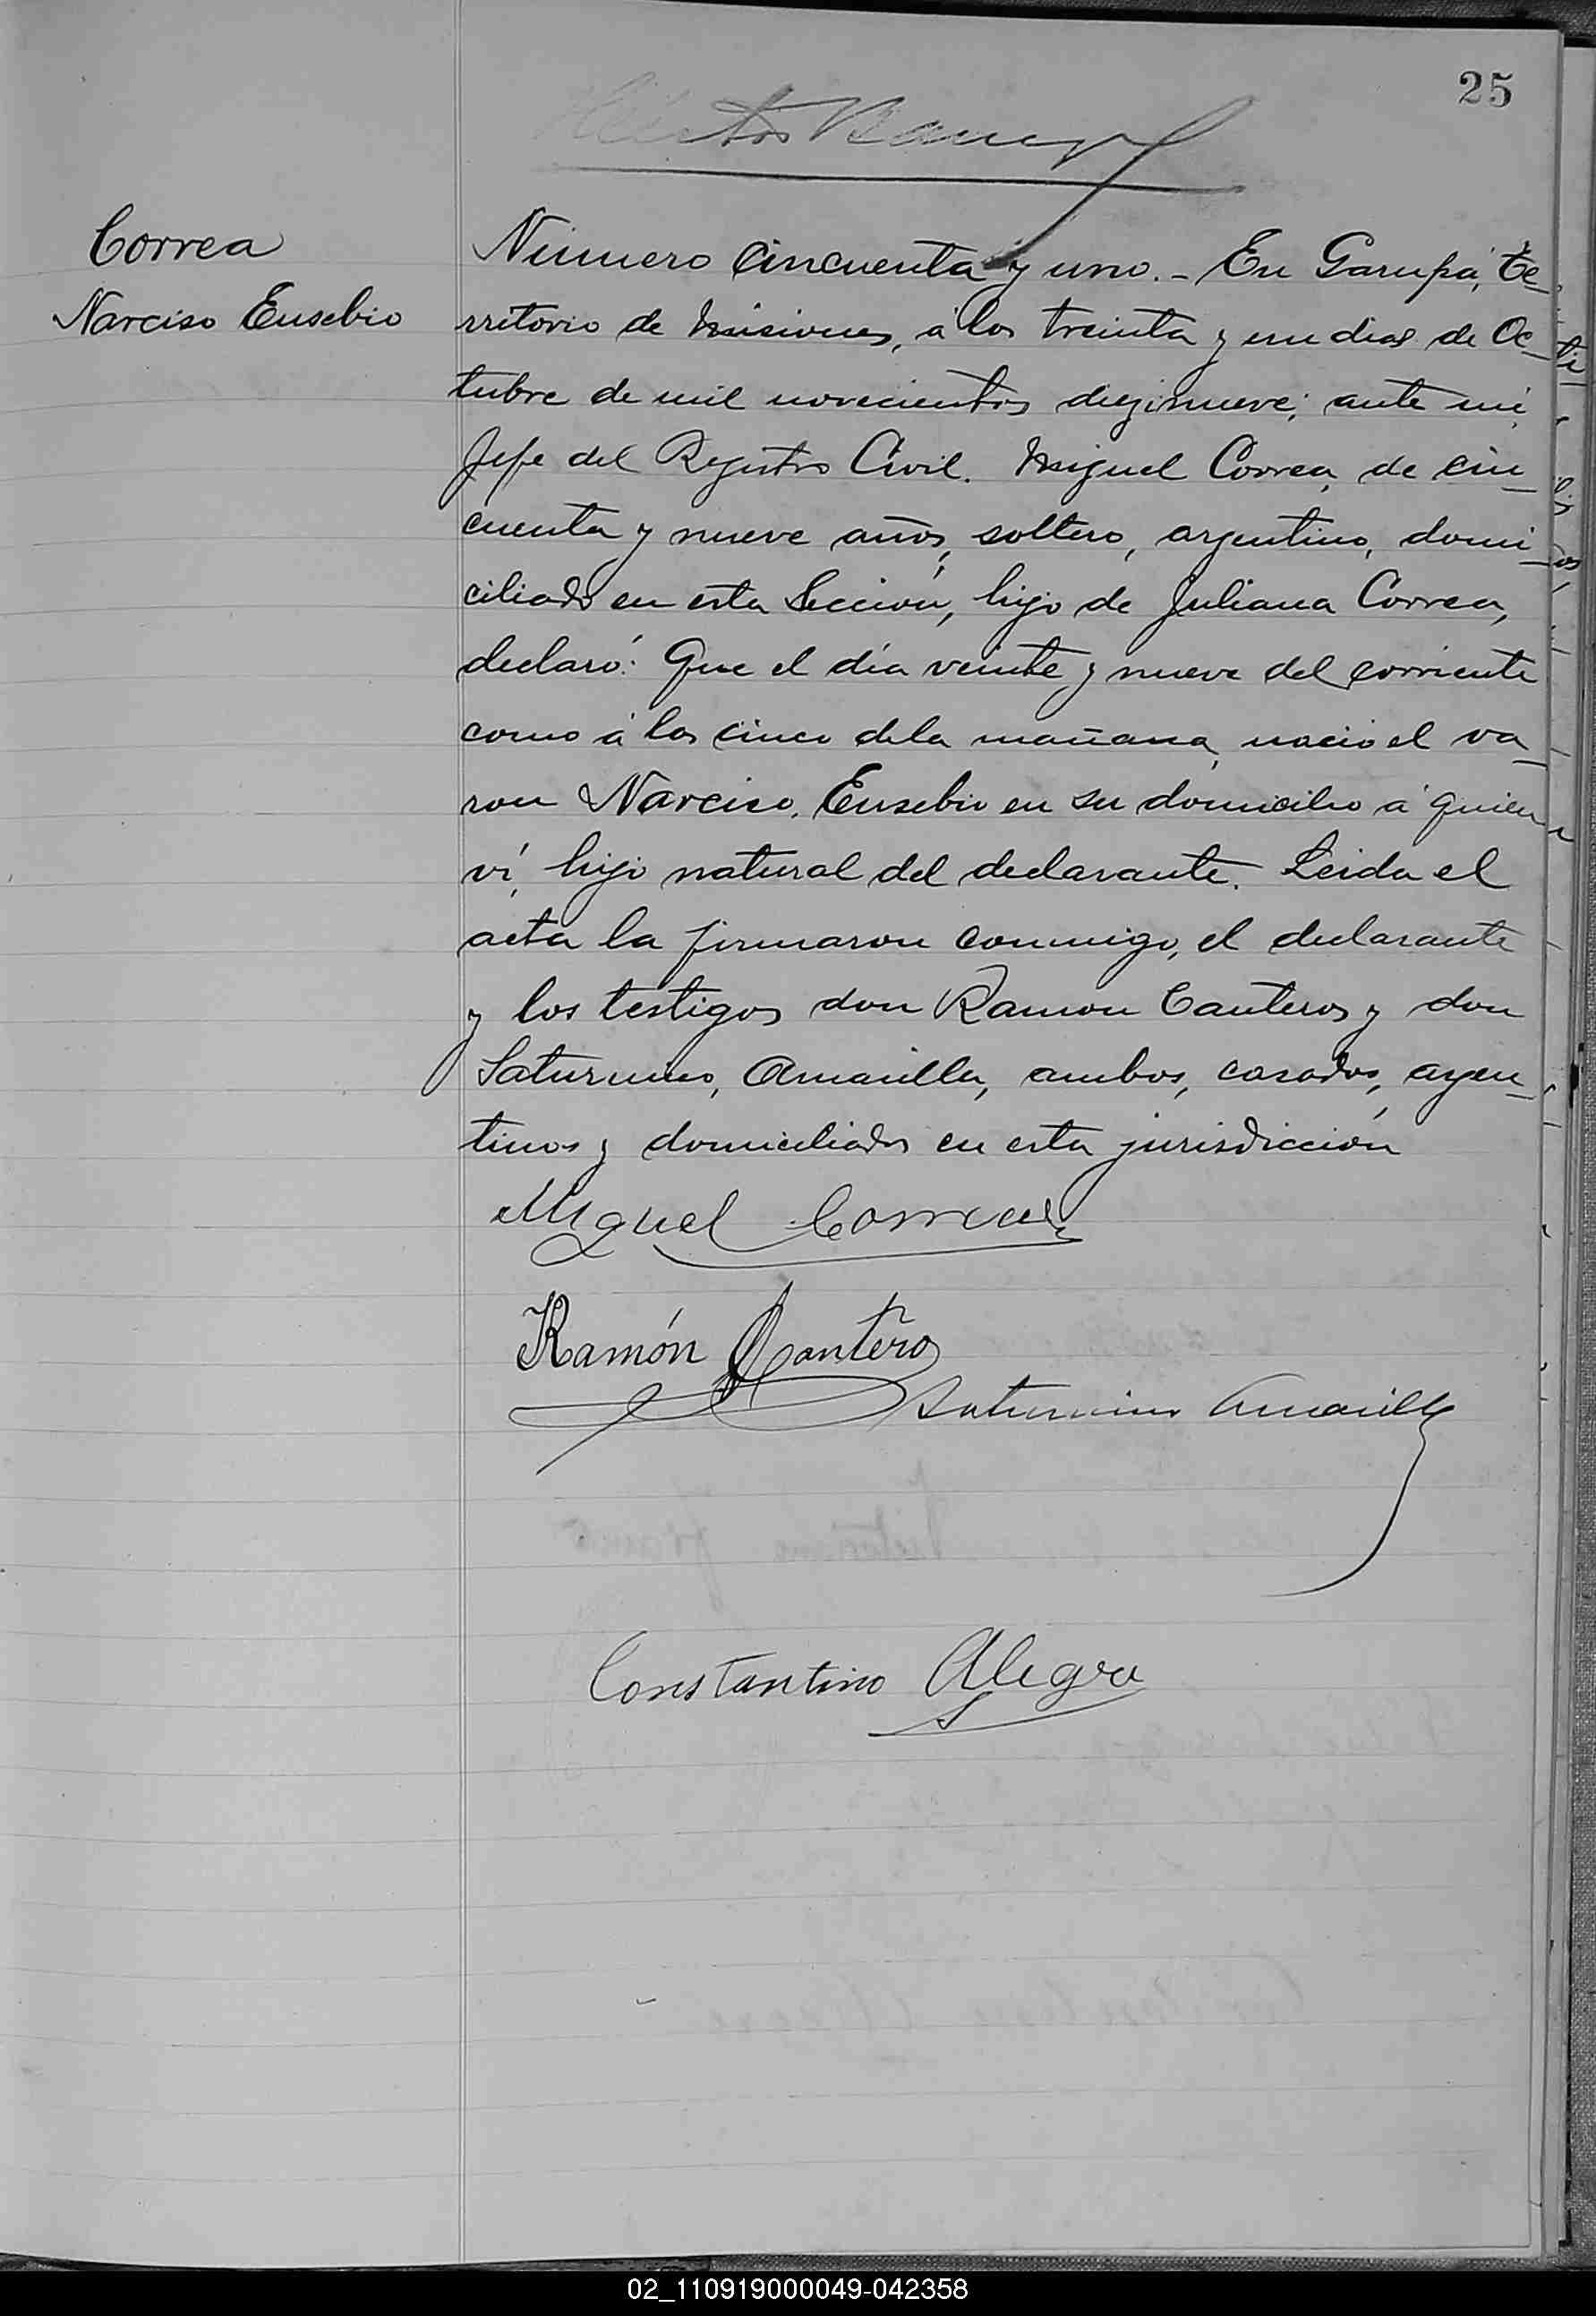 25
Correa
Narciso Eusebio
Número Cincuenta y uno. - En Garupá, Te-
rritorio de Misiones, á los treinta y un dias de Oc-
tubre de mil novecientos diezinueve; ante mi,
Jefe del Registro Civil. Miguel Correa, de cin-
cuenta y nueve años, soltero, argentino, domi-
ciliado en esta Sección, hijo de Juliana Correa,
declaró: Que el día veinte y nueve del corriente
como á las cinco de la mañana, nació el va-
ron Narciso, Eusebio en su domicilio á quien
ví, hijo natural del declarante. Leida el
acta la firmaron conmigo, el declarante
y los testigos don Ramon Canteros y don
Saturnino, Amarilla, ambos, casados, argen-
tinos y domiciliados en esta jurisdicción
Miguel Correa
Ramón Cantero
Saturnino Amarilla
Constantino Alegre
02_110919000049-042358